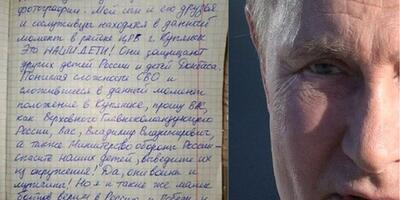 фотографии. Мой сын и его друзья
и сослуживцы находятся в данный
момент в районе ЦРБ г. Купянск
Это НАШИ ДЕТИ! Они защищают
других детей России и детей Донбасса.
Понимая сложность СВО и
сложившееся в данный момент
положение в Купянске, прошу Вас,
как Верховного Главнокомандующего
России, Вас, Владимир Владимирович,
а также Министерство обороны России -
спасите наших детей, выведите их
из окружения! Да, они воины и
мужчины! Но я и такие же мамы
бойцов верим в Россию и Победу и